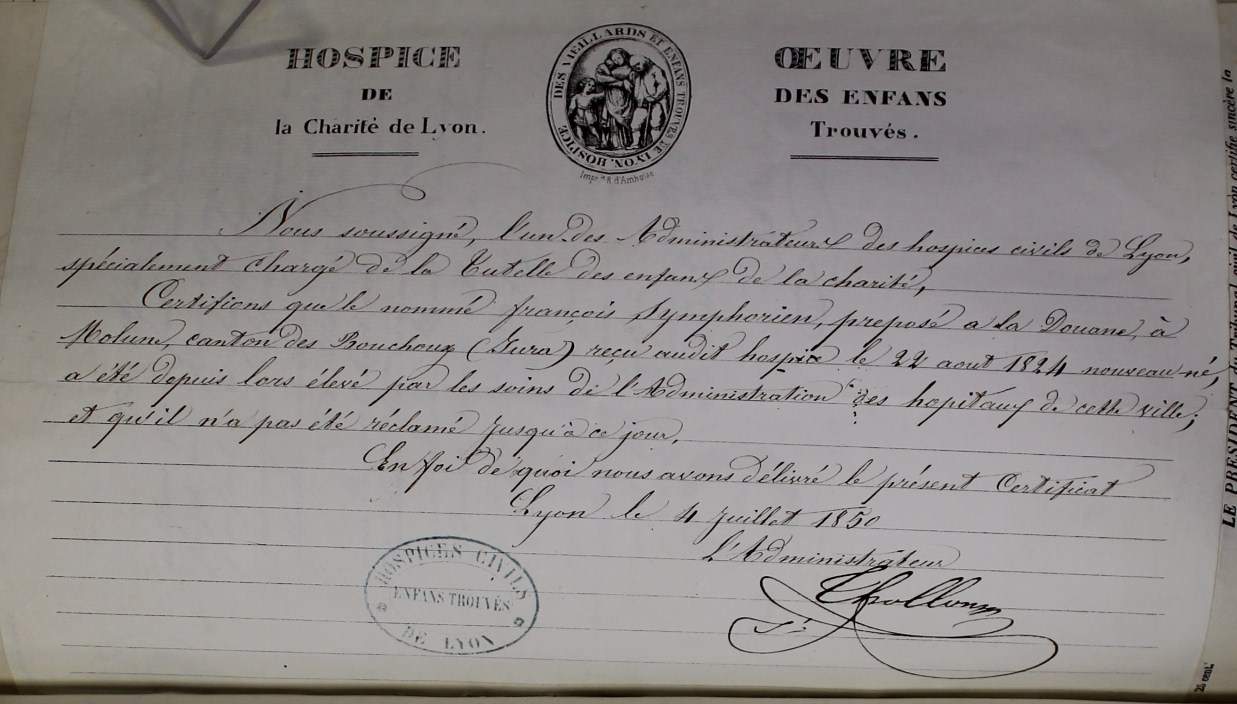 HOSPICE
DE
la Charité de Lyon.
HOSPICE DES VIEILLARDS ET ENFANS TROUVÉS DE LYON.
ŒUVRE
DES ENFANS
Trouvés.
Nous soussigné, l'un des Administrateurs des hospices civils de Lyon,
spécialement chargé de la Tutelle des enfans de la charité,
Certifions que le nommé françois Symphorien, preposé a la Douane, à
Molune, canton des Bouchoux (Jura) reçu audit hospice le 22 aout 1824 nouveau né,
a été depuis lors élevé par les soins de l'Administration des hopitaux de cette ville;
et qu'il n'a pas été réclamé jusqu'à ce jour.
En foi de quoi nous avons délivré le présent Certificat
Lyon le 4 juillet 1850
L'Administrateur
HOSPICES CIVILS
ENFANS TROUVÉS
DE LYON
LE PRÉSIDENT du Tribunal civil de Lyon certifie sincère la
25 cent.